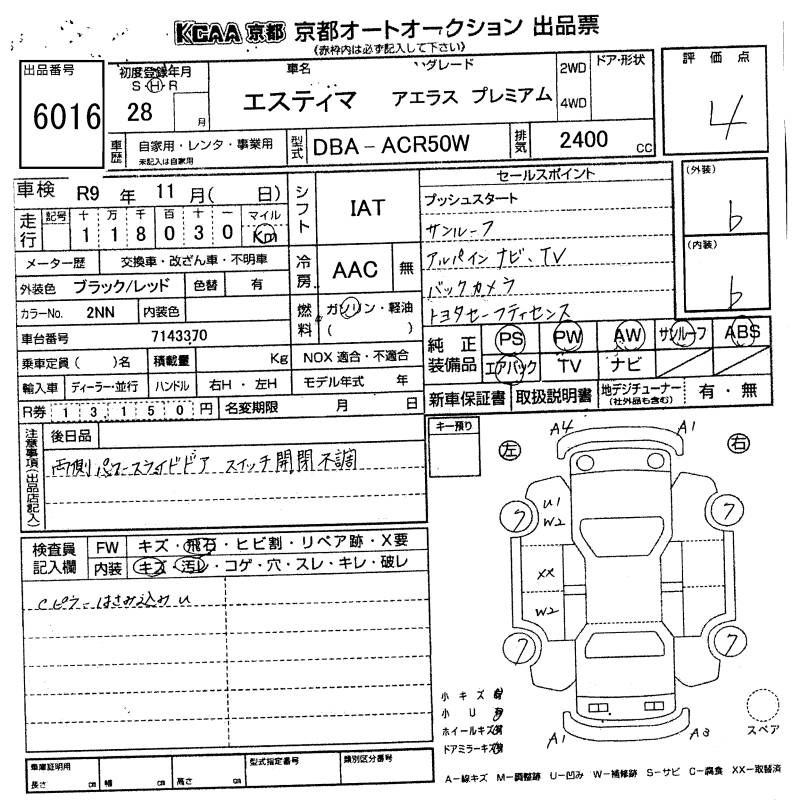 KCAA 京都 京都オートオークション 出品票
(赤枠内は必ず記入して下さい)
出品番号
6016
初度登録年月
S・H・R
28
月
車名
エスティマ
グレード
アエラス プレミアム
2WD
4WD
ドア・形状
評価点
4
車歴
自家用・レンタ・事業用
未記入は自家用
型式
DBA－ACR50W
排気
2400
CC
車検
R9 年 11 月( 日)
走行
記号
十 万 千 百 十 一
1 1 8 0 3 0
マイル
Km
メーター歴
交換車・改ざん車・不明車
外装色
ブラック/レッド
色替
有
カラーNo.
2NN
内装色
車台番号
7143370
乗車定員 ( )名
積載量
Kg
輸入車
ディーラー・並行
ハンドル
右H ・ 左H
R券
13150円
名変期限
月 日
シフト
IAT
冷房
AAC
無
燃料
ガソリン・軽油
( )
NOX 適合・不適合
モデル年式 年
セールスポイント
プッシュスタート
サンルーフ
アルパイン ナビ、TV
バックカメラ
トヨタセーフティセンス
(外装)
b
(内装)
b
純正装備品
PS
PW
AW
サンルーフ
ABS
エアバック
TV
ナビ
新車保証書
取扱説明書
地デジチューナー
(社外品も含む)
有 ・ 無
注意事項(出品店記入)
後日品
両側パワースライドドア スイッチ開閉不調
キー預り
左
右
A4
A1
U1
W2
XX
W2
7
7
7
7
A1
A3
検査員記入欄
FW
キズ・飛石・ヒビ割・リペア跡・X要
内装
キズ・汚レ・コゲ・穴・スレ・キレ・破レ
Cピラーはさみ込みU
小キズ
小U
ホイールキズ
ドアミラーキズ
スペア
車庫証明用
長さ cm
幅 cm
高さ cm
型式指定番号
類別区分番号
A－線キズ M－調整跡 U－凹み W－補修跡 S－サビ C－腐食 XX－取替済